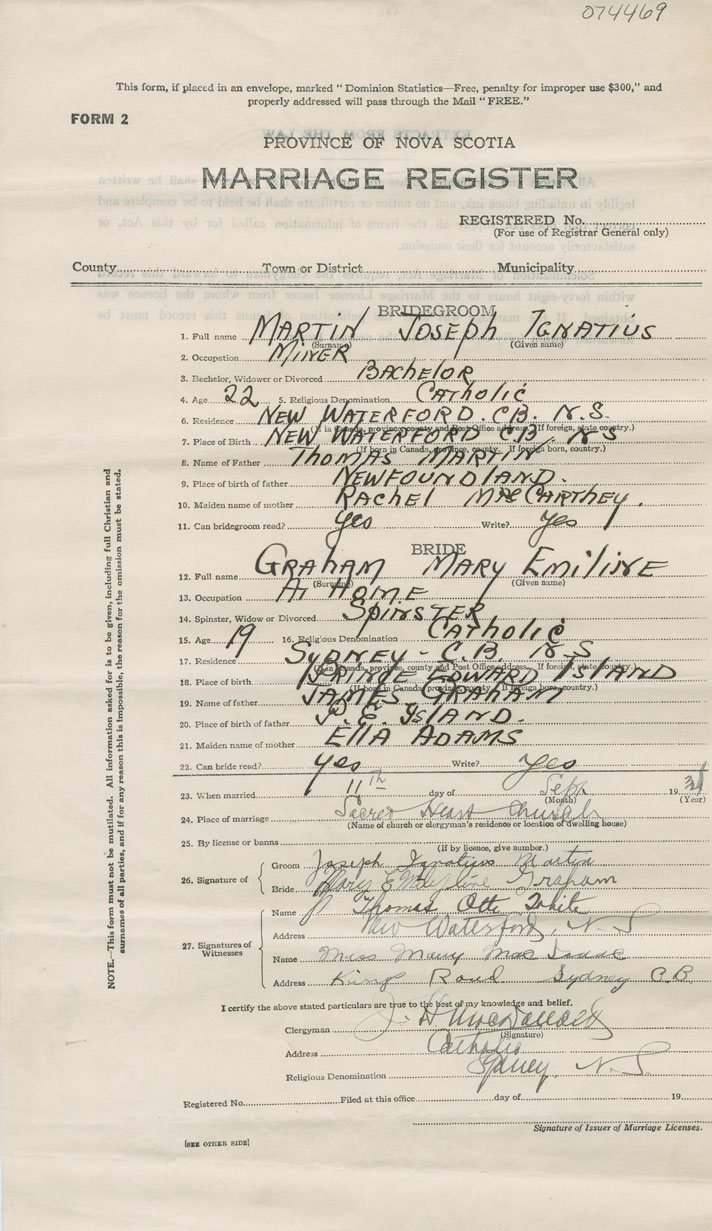 074469
This form, if placed in an envelope, marked "Dominion Statistics—Free, penalty for improper use $300," and
properly addressed will pass through the Mail "FREE."
FORM 2
PROVINCE OF NOVA SCOTIA
MARRIAGE REGISTER
REGISTERED No.
(For use of Registrar General only)
County Town or District Municipality
BRIDEGROOM
1. Full name MARTIN JOSEPH IGNATIUS
(Surname) (Given name)
2. Occupation MINER
3. Bachelor, Widower or Divorced BACHELOR
4. Age 22 5. Religious Denomination CATHOLIC
6. Residence NEW WATERFORD. C.B. N.S.
(If in Canada, province, county and Post Office address. If foreign, state country.)
7. Place of Birth NEW WATERFORD C.B. N S
(If born in Canada, province, county. If foreign born, country.)
8. Name of Father THOMAS MARTIN
9. Place of birth of father NEWFOUNDLAND.
10. Maiden name of mother RACHEL MACCARTHEY.
11. Can bridegroom read? yes Write? yes
BRIDE
12. Full name GRAHAM MARY EMILINE
(Surname) (Given name)
13. Occupation AT HOME
14. Spinster, Widow or Divorced SPINSTER
15. Age 19 16. Religious Denomination CATHOLIC
17. Residence SYDNEY - C.B. N.S
(If in Canada, province, county and Post Office address. If foreign, state country.)
18. Place of birth PRINCE EDWARD ISLAND
(If born in Canada, province, county. If foreign born, country.)
19. Name of father JAMES GRAHAM
20. Place of birth of father P. E. ISLAND.
21. Maiden name of mother ELLA ADAMS
22. Can bride read? yes Write? yes
23. When married 11th day of Sept. 19
(Month) (Year)
24. Place of marriage Sacred Heart Church
(Name of church or clergyman's residence or location of dwelling house)
25. By license or banns
(If by licence, give number.)
26. Signature of Groom Joseph Ignatius Martin
Bride Mary Graham
27. Signatures of Witnesses
Name Thomas Otto White
Address New Waterford, N. S
Name Miss Mary Mac Isaac
Address Kings Road Sydney C.B.
I certify the above stated particulars are true to the best of my knowledge and belief.
Clergyman
(Signature)
Address Catholic
Religious Denomination Sydney. N. S.
Registered No. Filed at this office day of 19
Signature of Issuer of Marriage Licenses.
[SEE OTHER SIDE]
NOTE.—This form must not be mutilated. All information asked for is to be given, including full Christian and
surnames of all parties, and if for any reason this is impossible, the reason for the omission must be stated.